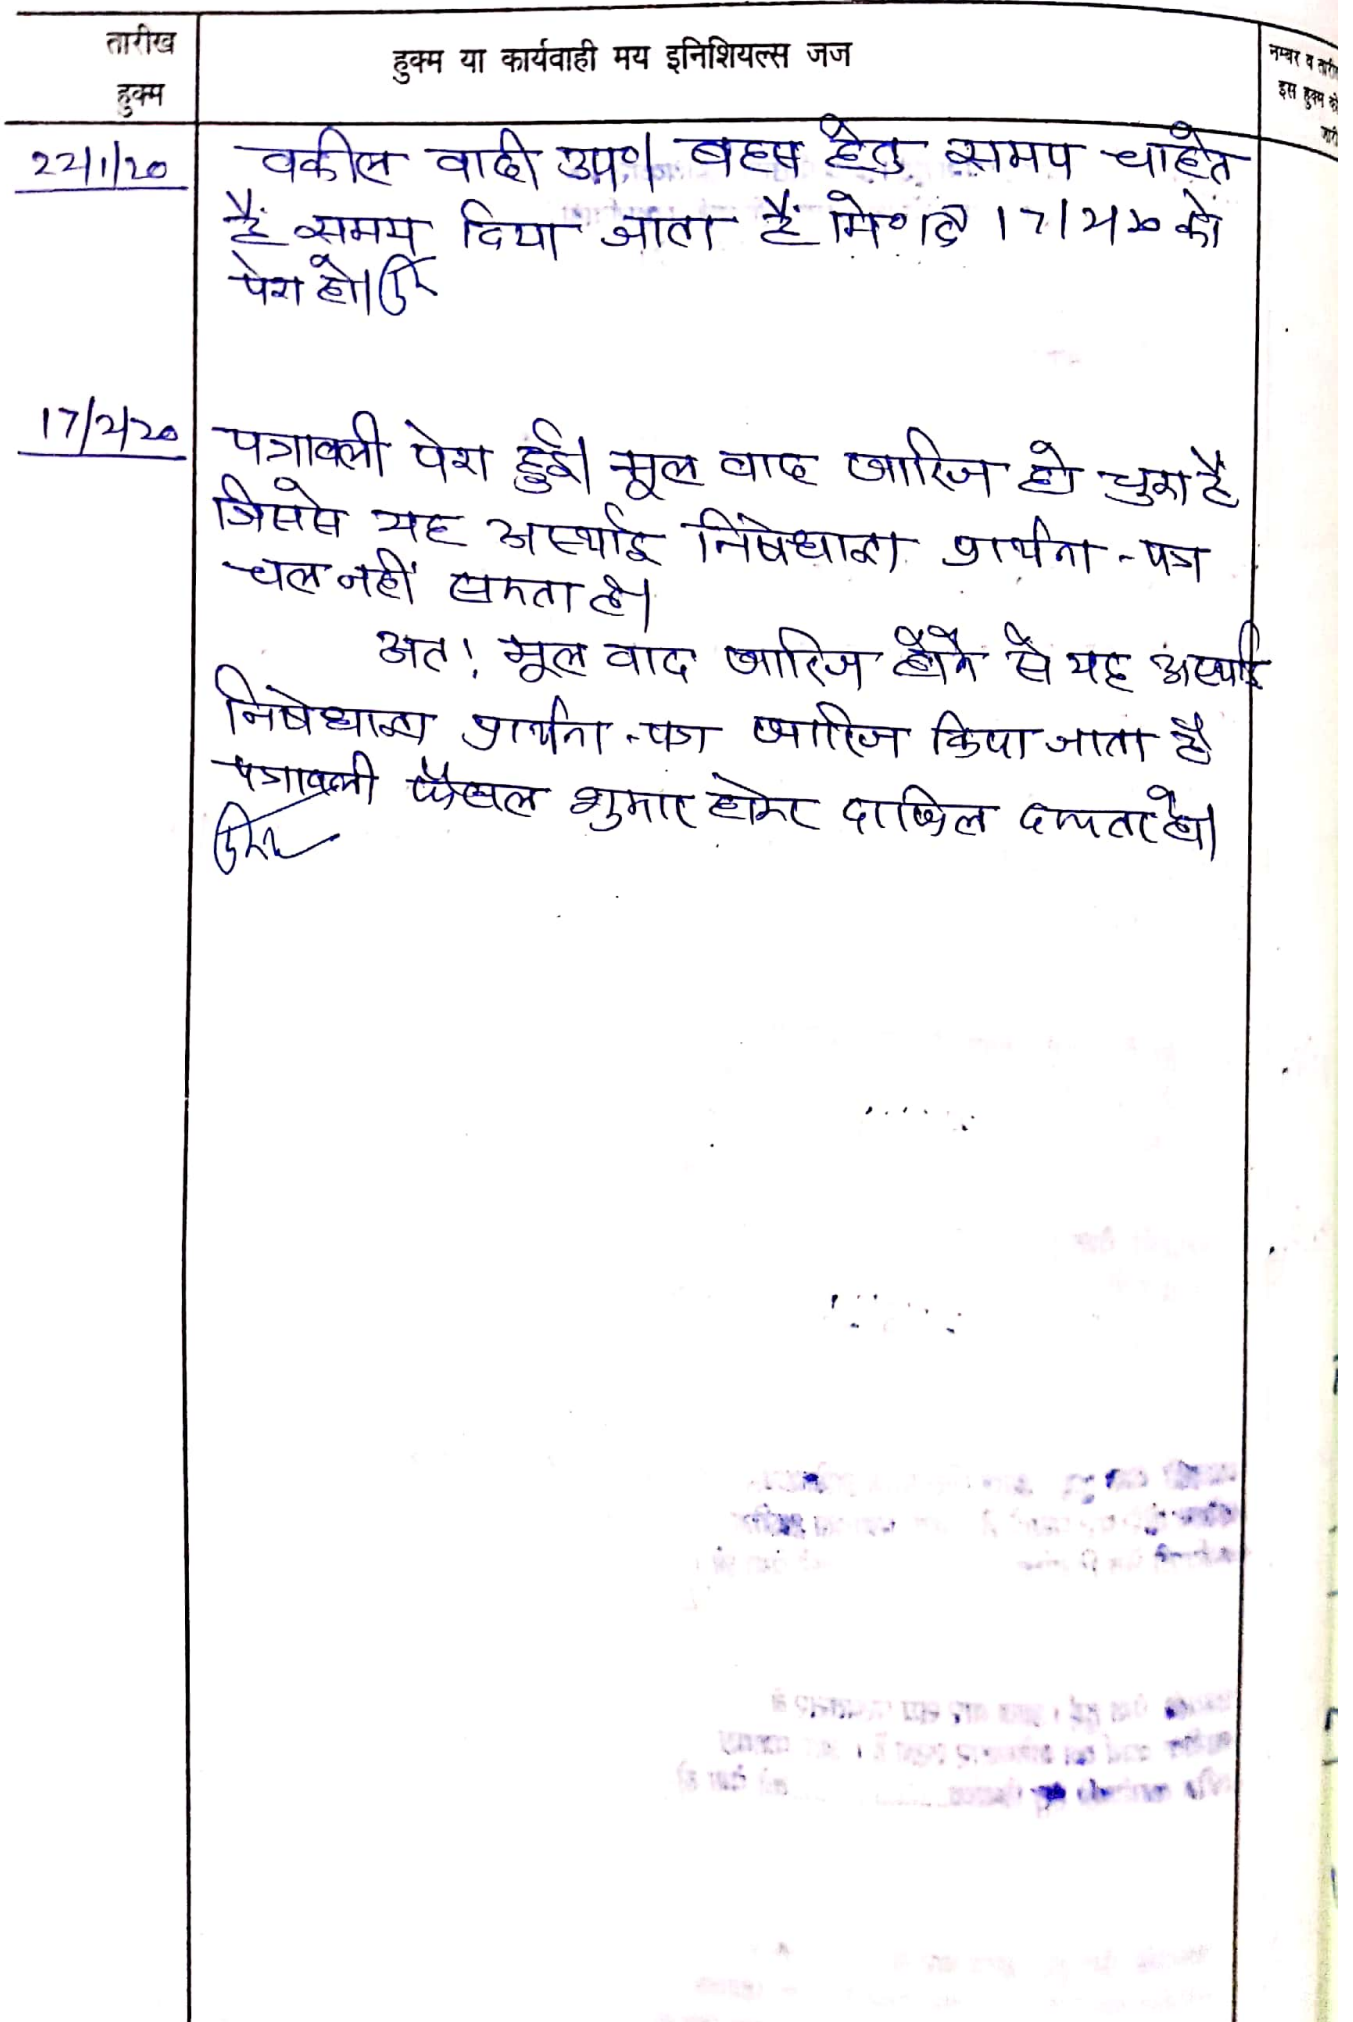 तारीख
हुक्म
हुक्म या कार्यवाही मय इनिशियल्स जज
नम्बर व
इस हुक्म
22/1/20
वकील वादी उप०। बहस हेतु समय चाहते
हैं समय दिया जाता हैं 17/2/20 को
पेश हो।
17/2/20
पत्रावली पेश हुई। मूल वाद खारिज हो चुका है
जिससे यह अस्थाई निषेधाज्ञा प्रार्थना-पत्र
चल नहीं सकता है।
अत: मूल वाद खारिज होने से यह अस्थाई
निषेधाज्ञा प्रार्थना-पत्र खारिज किया जाता है
पत्रावली फैसल शुमार होकर दाखिल दफ्तर हो।